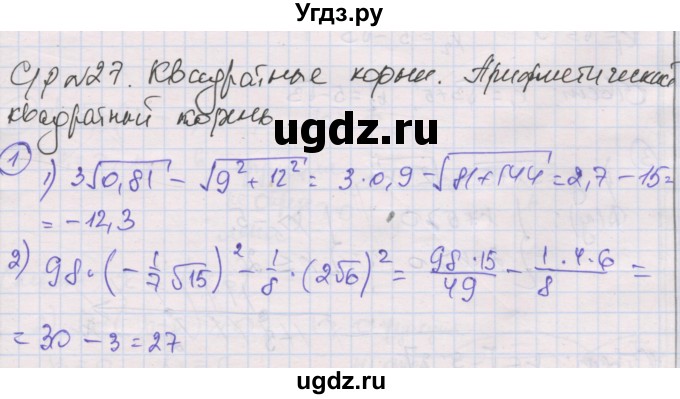 Угдз.ру
С/р №27. Квадратные корни. Арифметический
квадратный корень
ugdz.ru
① 1) 3√0,81 - √9² + 12² = 3·0,9 - √81+144 = 2,7 - 15 =
= -12,3
2) 98·(-1/7 √15)² - 1/8·(2√6)² = 98·15/49 - 1·4·6/8 =
= 30 - 3 = 27
ugdz.ru
ugdz.ru